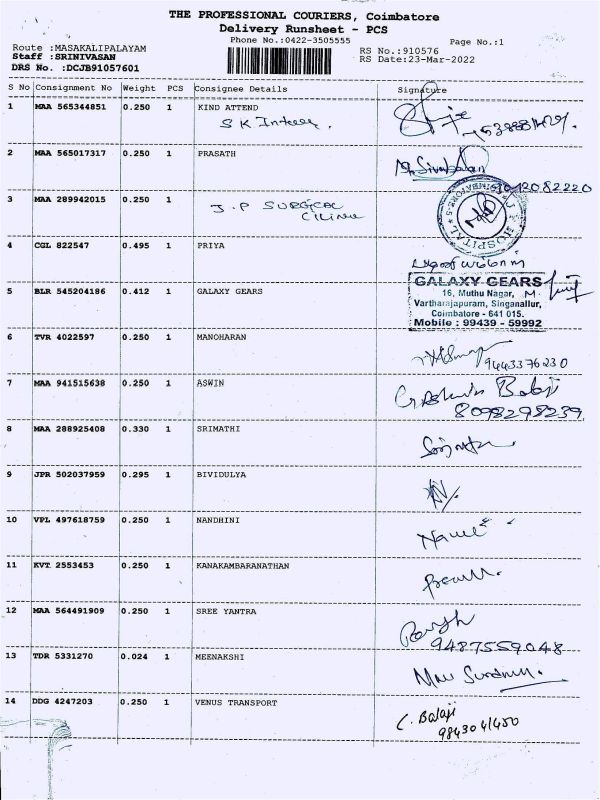 THE PROFESSIONAL COURIERS, Coimbatore
Delivery Runsheet - PCS
Phone No.:0422-3505555
Page No.:1
Route :MASAKALIPALAYAM
Staff :SRINIVASAN
DRS No. :DCJB91057601
RS No.:910576
RS Date:23-Mar-2022
S No Consignment No Weight PCS Consignee Details Signature
1 MAA 565344851 0.250 1 KIND ATTEND
S K
2 MAA 565017317 0.250 1 PRASATH
3 MAA 289942015 0.250 1
J.P SURGICAL
HOSPITAL
4 CGL 822547 0.495 1 PRIYA
5 BLR 545204186 0.412 1 GALAXY GEARS
GALAXY GEARS
16, Muthu Nagar,
Vartharajapuram, Singanallur,
Coimbatore - 641 015.
Mobile : 99439 - 59992
6 TVR 4022597 0.250 1 MANOHARAN
9443376230
7 MAA 941515638 0.250 1 ASWIN
Balaji
8098298239
8 MAA 288925408 0.330 1 SRIMATHI
9 JPR 502037959 0.295 1 BIVIDULYA
10 VPL 497618759 0.250 1 NANDHINI
11 KVT 2553453 0.250 1 KANAKAMBARANATHAN
12 MAA 564491909 0.250 1 SREE YANTRA
9487559048
13 TDR 5331270 0.024 1 MEENAKSHI
14 DDG 4247203 0.250 1 VENUS TRANSPORT
C. Balaji
9843041450